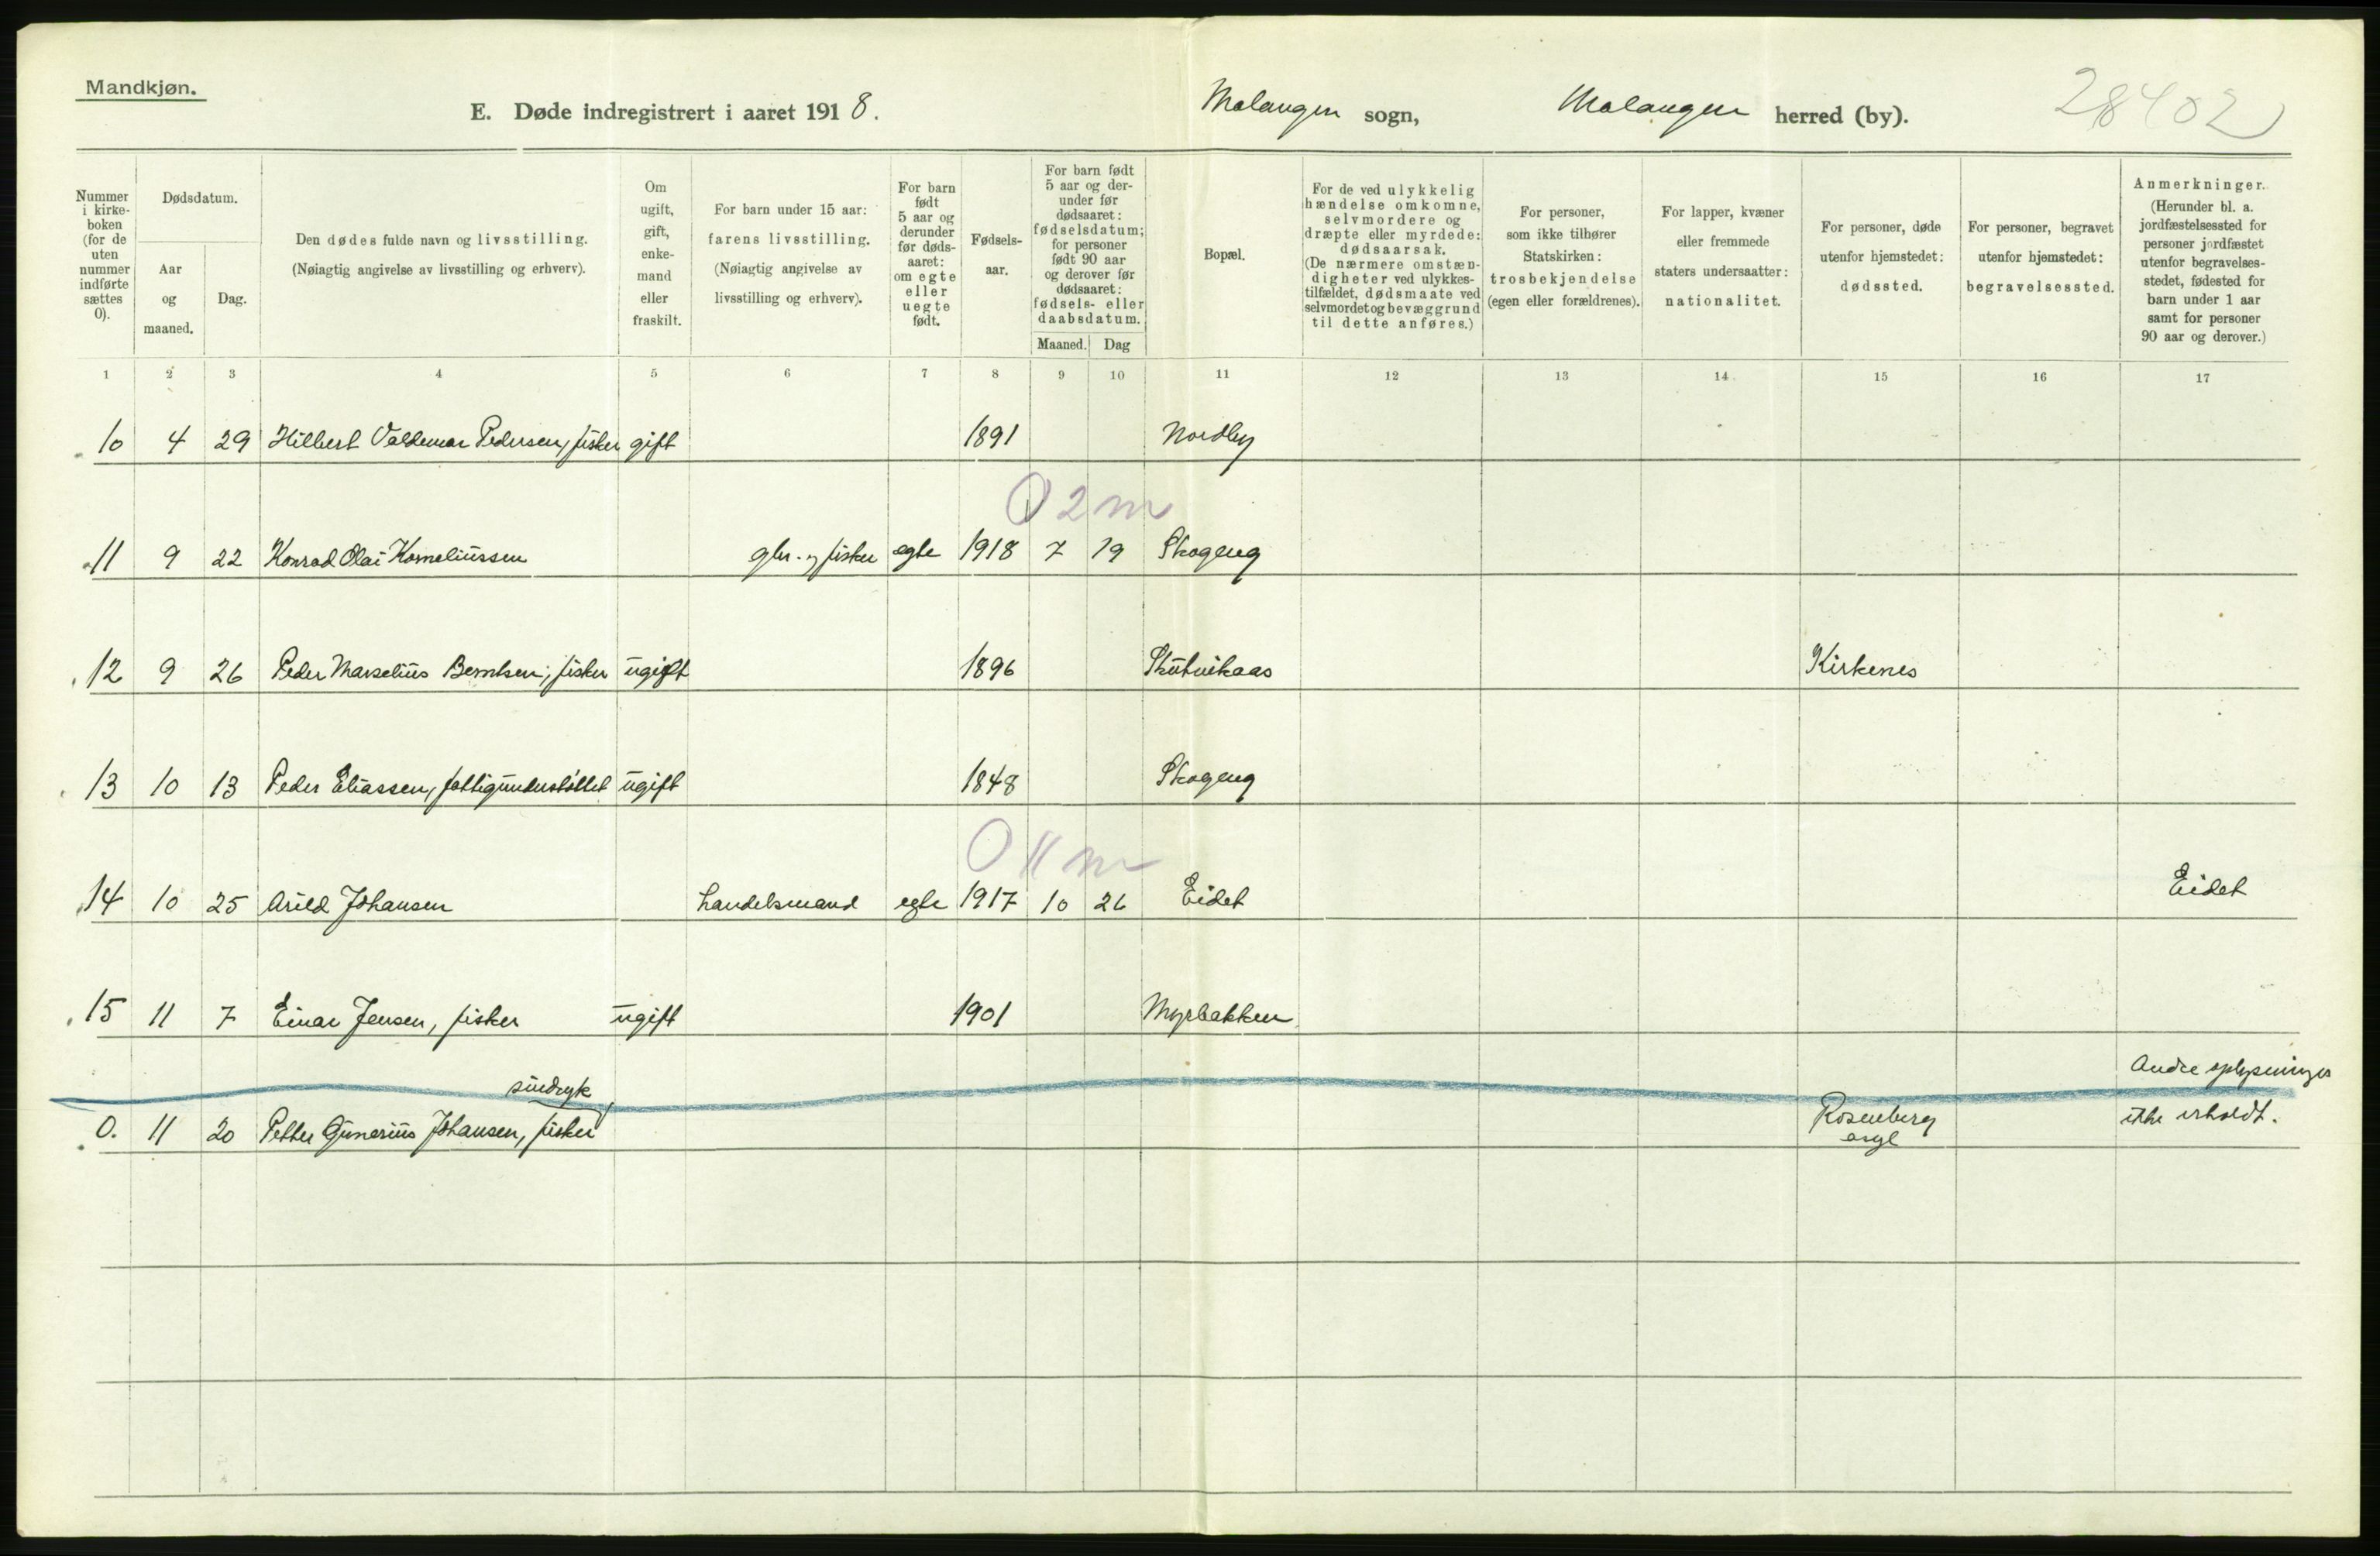 Mandkjøn.
E. Døde indregistrert i aaret 1918.
Malangen sogn,
Malangen herred (by).
28402
Nummer i kirke-boken (for de uten nummer indførte sættes 0).
Dødsdatum.
Aar og maaned.
Dag.
Den dødes fulde navn og livsstilling.
(Nøiagtig angivelse av livsstilling og erhverv).
Om ugift, gift, enke-mand eller fraskilt.
For barn under 15 aar: farens livsstilling.
(Nøiagtig angivelse av livsstilling og erhverv).
For barn født 5 aar og derunder før døds-aaret: om egte eller uegte født.
Fødsels-aar.
For barn født 5 aar og der-under før dødsaaret: fødselsdatum; for personer født 90 aar og derover før dødsaaret: fødsels- eller daabsdatum.
Maaned.
Dag
Bopæl.
For de ved ulykkelig hændelse omkomne, selvmordere og dræpte eller myrdede: dødsaarsak.
(De nærmere omstæn-digheter ved ulykkes-tilfældet, dødsmaate ved selvmordet og bevæggrund til dette anføres.)
For personer, som ikke tilhører Statskirken: trosbekjendelse (egen eller forældrenes).
For lapper, kvæner eller fremmede staters undersaatter: nationalitet.
For personer, døde utenfor hjemstedet: dødssted.
For personer, begravet utenfor hjemstedet: begravelsessted.
Anmerkninger.
(Herunder bl. a. jordfæstelsessted for personer jordfæstet utenfor begravelses-stedet, fødested for barn under 1 aar samt for personer 90 aar og derover.)
1 2 3 4 5 6 7 8 9 10 11 12 13 14 15 16 17
10 4 29 Hilbert Valdemar Pedersen, fisker gift 1891 Nordby
0 2 m
11 9 22 Konrad Olai Korneliussen gbr. og fisker egte 1918 7 19 Skogeng
12 9 26 Peder Marselius Berntsen, fisker ugift 1896 Skutvikaas Kirkenes
13 10 13 Peder Eliassen, fattigunderstøttet ugift 1848 Skogeng
0 11 m
14 10 25 Arild Johansen handelsmand egte 1917 10 26 Eidet Eidet
15 11 7 Einar Jensen, fisker ugift 1901 Myrbakken
sindsyk
Andre oplysninger
0. 11 20 Petter Gunerius Johansen, fisker Rosenberg asyl ikke erholdt.